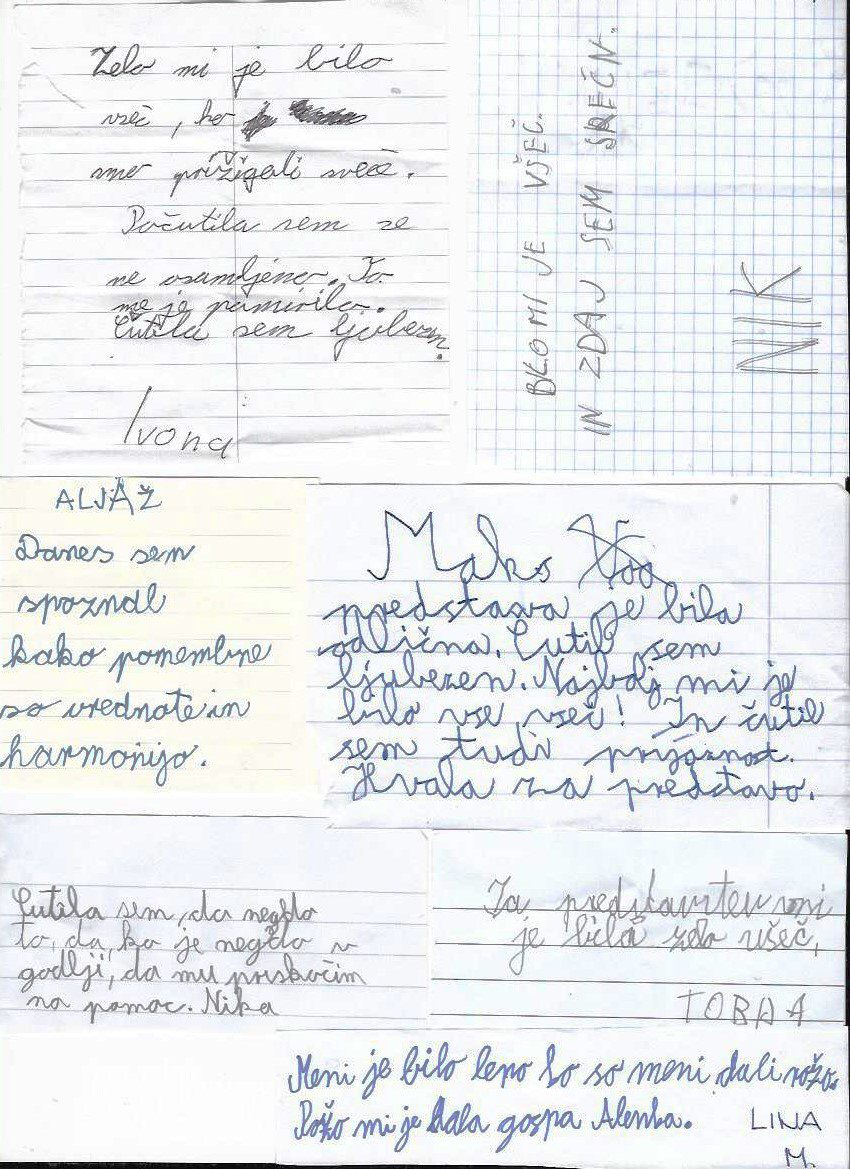 Zelo mi je bilo
všeč, ko
smo prižigali sveče.
Počutila sem se
ne osamljeno. To
me je pomirilo.
Čutila sem ljubezn.
Ivona
BLO MI JE VŠEČ.
IN ZDAJ SEM SREČN.
NIK
ALJAŽ
Danes sem
spoznal
kako pomembne
so vrednote in
harmonijo.
Maks
predstava je bila
odlična. Čutil sem
ljubezen. Najbolj mi je
bilo vse všeč! In čutil
sem tudi prijaznost.
Hvala za predstavo.
Čutila sem, da negdo
to, da ko je negdo v
godlji, da mu priskočim
na pomoč. Nika
Ta predstavitev mi
je bila zelo všeč,
Meni je bilo lepo ko so meni dali rožo.
Rožo mi je dala gospa Alenka. LINA
M.